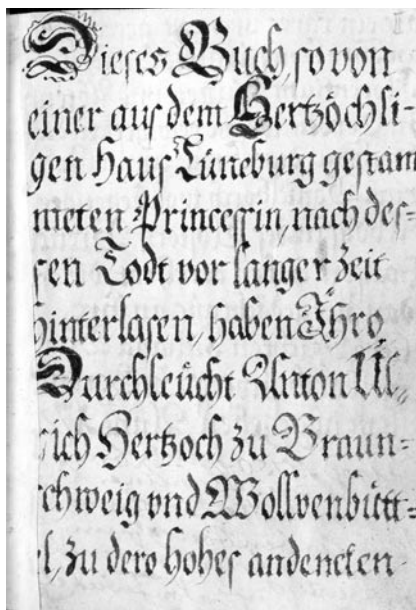 Dieses Buch, so von
einer aus dem Hertzöchli-
gen Haus Lüneburg gestam
meten Princessin, nach des-
sen Todt vor langer Zeit
hinterlasen, haben Ihro
Durchleücht Anton Ul-
rich Hertzoch zu Braun=
schweig vnd Wollvenbütt=
el, zu dero hohes andencken